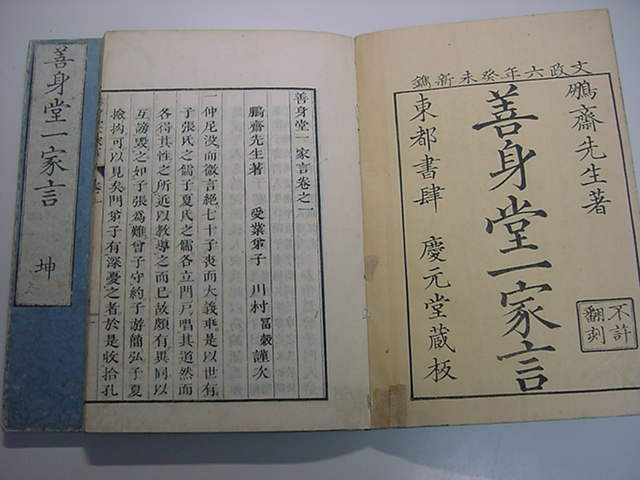 文政六年癸未新鐫
鵬齋先生著
善身堂一家言
東都書肆 慶元堂蔵板
不許
翻刻
善身堂一家言卷之一
鵬齋先生著 受業弟子 川村 冨穀 謹次
一仲尼没而微言絕七十子喪而大義乖是以世有
子張氏之儒子夏氏之儒各立門戸唱其道然而
各得其性之所近以教導之而已故頗有異同以
互謗毀之如子張為難曾子守約子游簡弘子夏
撿拘可以見矣門弟子有深憂之者於是收拾孔
善身堂一家言 坤